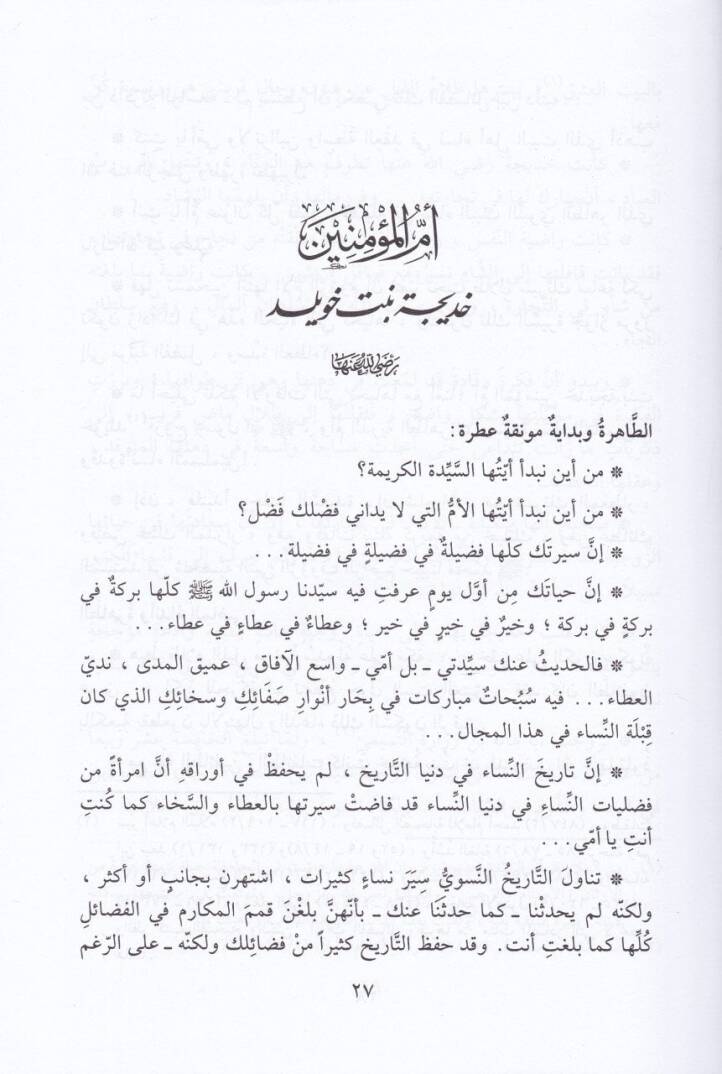 أُمُّ الْمُؤْمِنِينَ
خديجة بنت خويلد
رَضِيَ اللَّهُ عَنْهَا
الطَّاهرةُ وبدايةٌ مونقةٌ عطرة:
* من أين نبدأ أيّتُها السَّيِّدة الكريمة؟
* من أين نبدأ أيّتُها الأمُّ التي لا يداني فضْلك فَضْل؟
* إنَّ سيرتَك كلّها فضيلةٌ في فضيلة في فضيلة...
* إنَّ حياتَك مِن أوَّل يومٍ عرفتِ فيه سيّدنا رسول الله ﷺ كلّها بركةٌ في
بركةٍ في بركة ؛ وخيرٌ في خيرٍ في خير ؛ وعطاءٌ في عطاءٍ في عطاء....
* فالحديثُ عنك سيِّدتي ـ بل أمّي ـ واسع الآفاق ، عميق المدى ، نديّ
العطاء... فيه سُبُحاتٌ مباركات في بِحَار أنْوارِ صَفَائِكِ وسخائِكِ الذي كان
قِبْلَة النِّساء في هذا المجال...
* إنَّ تاريخَ النِّساء في دنيا التَّاريخ ، لم يحفظْ في أوراقه أنَّ امرأةً من
فضليات النِّساءِ في دنيا النِّساء قد فاضتْ سيرتها بالعطاء والسَّخاء كما كُنتِ
أنتِ يا أمّي...
* تناول التَّاريخُ النَّسويُّ سِيَرَ نساءٍ كثيرات ، اشتهرن بجانبٍ أو أكثر ،
ولكنّه لم يحدثْنا ـ كما حدثَنا عنك ـ بأنّهنَّ بلغْنَ قممَ المكارم في الفضائلِ
كُلِّها كما بلغتِ أنت. وقد حفظ التَّاريخ كثيراً منْ فضائلك ولكنّه ـ على الرّغم
٢٧